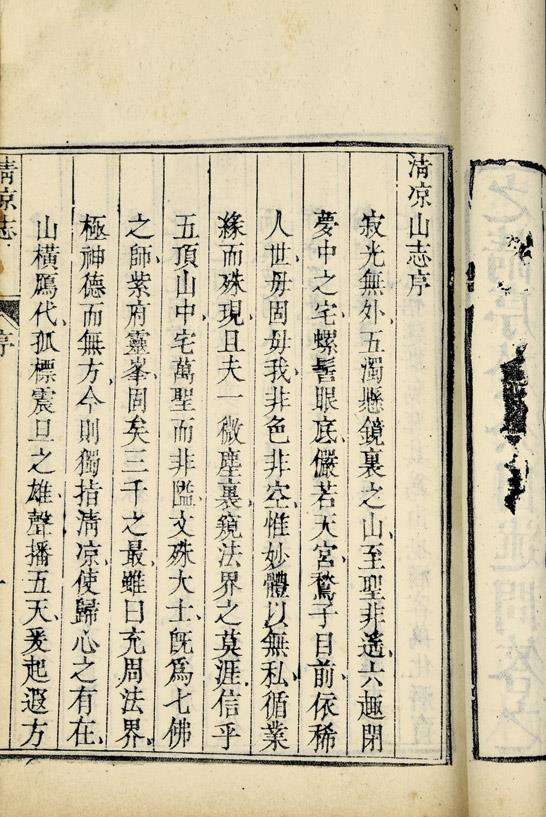 清凉山志序
寂光無外、五濁懸鏡裏之山、至聖非遙、六趣閉
夢中之宅、螺髻眼底、儼若天宮、鶖子目前、依稀
人世、毋固毋我、非色非空、惟妙體以無私、循業
緣而殊現、且夫一微塵裏、鏡法界之莫涯、信乎
五頂山中、宅萬聖而非隘、文殊大士、旣爲七佛
之師、紫府靈峯、固矣三千之最、雖曰充周法界、
極神德而無方、今則獨指清凉、使歸心之有在、
山橫鴈代、孤標震旦之雄、聲播五天、爰起遐方
清凉志
序